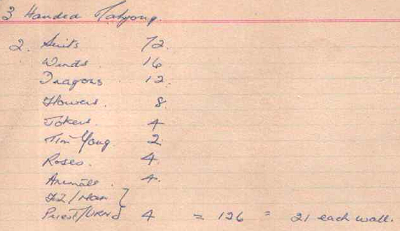 3 Handed Mahyong.
2. Suits 72
Winds 16
Dragons 12
Flowers 8
Jokers 4
Yin Yang 2
Roses. 4.
Animals. 4.
/Man }
Priest/URN } 4 = 126 = 21 each wall.